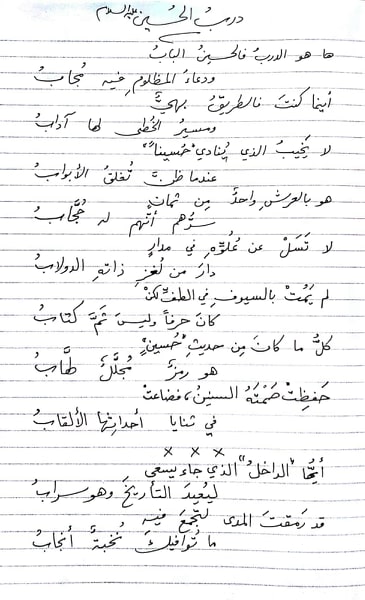 دربُ الحُسين عليه السلام
ها هو الدربُ فالحسينُ البابُ
ودعاءُ المظلومِ فيه مُجابُ
أينما كنتَ فالطريقُ بهيٌّ
ومسيرُ الخُطى لها آدابُ
لا يَخيبُ الذي يُنادي "حُسيناً"
عندما ظنَّ تُغلقُ الأبوابُ
هو بالعرشِ واحدٌ مِن ثمانٍ
سرُّهم أنّهم له حُجَّابُ
لا تَسَلْ عن عُلوِّهِ في مدارٍ
دارَ من لُغزِ ذاتهِ الدولابُ
لم يَمُتْ بالسيوفِ في الطفِّ لكنْ
كانَ حرفاً وليسَ ثَمَّ كتابُ
كلُّ ما كانَ مِن حديثِ "حُسينٍ"
هو رمزٌ مُجلَّلٌ خلَّابُ
حَفِظَتْ صَمْتَهُ السنينُ، فضاعتْ
في ثنايا أحداثِها الألقابُ
× × ×
أيُّها "الداخلُ" الذي جاء يسعى
ليُعيدَ التأريخَ وهو سرابُ
قد رَمقتَ المدى لتَجمعَ فيهِ
ما تُوافيكَ نُخبةٌ أنجابُ